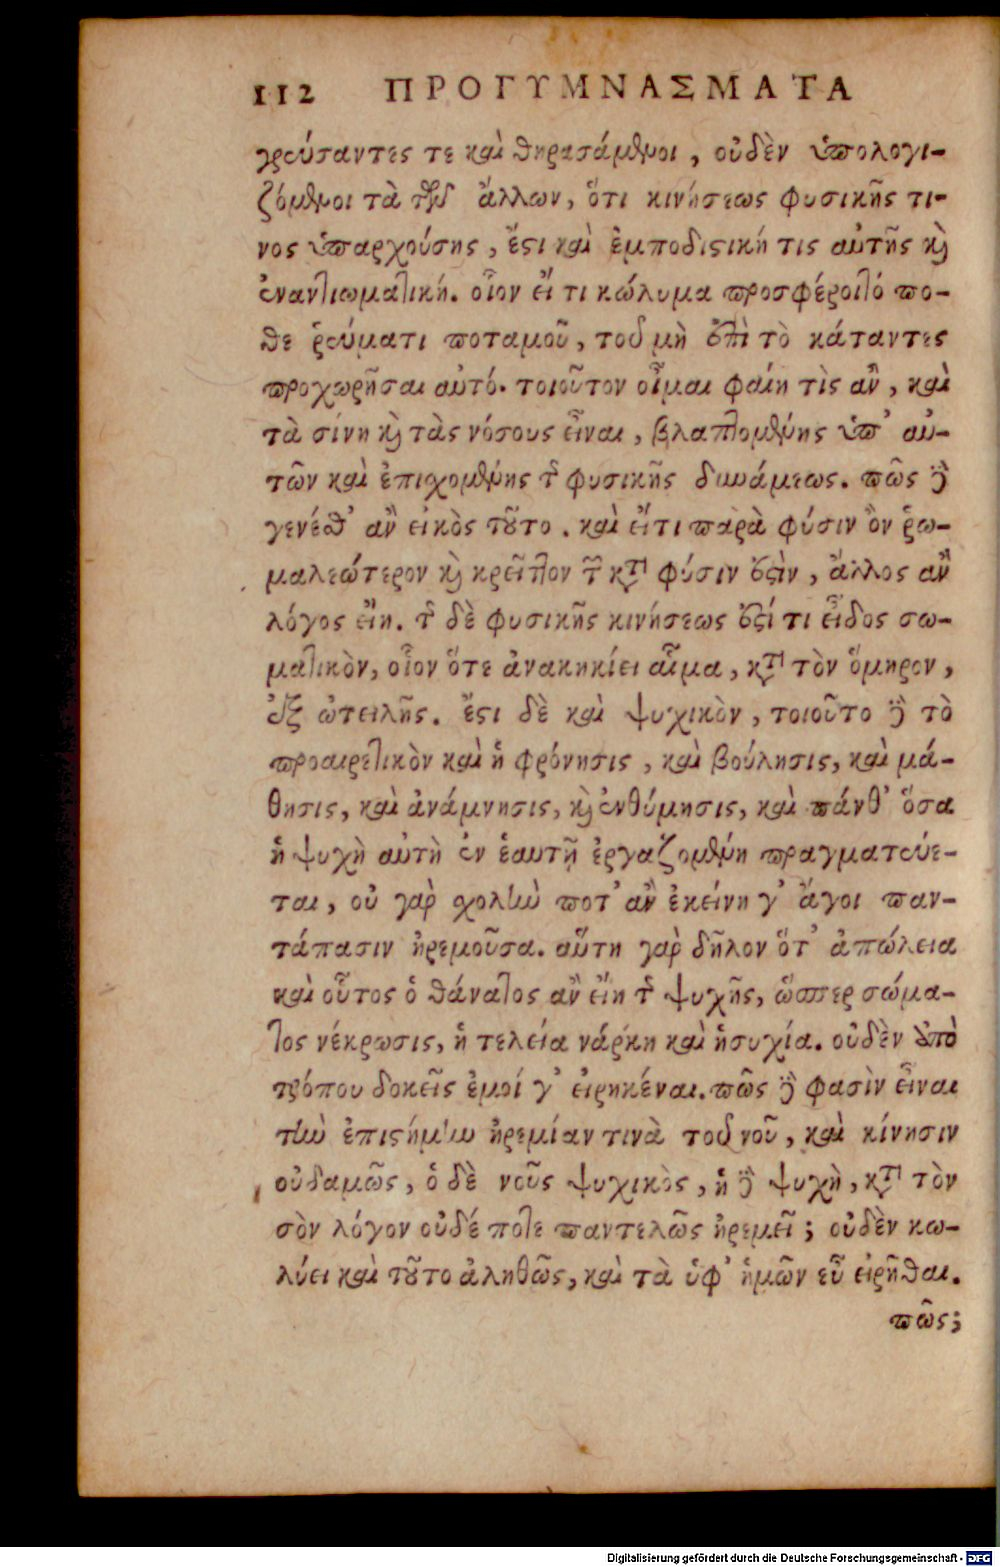 112 ΠΡΟΓΥΜΝΑΣΜΑΤΑ
γρεύσαντες τε καὶ θηρασάμενοι, οὐδὲν ὑπολογι-
ζόμενοι τὰ τῶν ἄλλων, ὅτι κινήσεως φυσικῆς τι-
νος ὑπαρχούσης, ἔστι καὶ ἐμποδιστική τις αὐτῆς καὶ
ἐναντιωματική. οἷον εἴ τι κώλυμα προσφέροιτό πο-
θε ῥεύματι ποταμοῦ, τοῦ μὴ ἐπὶ τὸ κάταντες
προχωρῆσαι αὐτό. τοιοῦτον οἶμαι φαίη τὶς ἂν, καὶ
τὰ σίνη καὶ τὰς νόσους εἶναι, βλαπτομένης ὑπ' αὐ-
τῶν καὶ ἐπιχομένης τῆς φυσικῆς δυνάμεως. πῶς γὰρ
γενέσθ' ἂν εἰκὸς τοῦτο. καὶ εἴτι παρὰ φύσιν ὂν ῥω-
μαλεώτερον καὶ κρεῖττον τοῦ κατὰ φύσιν ἐστὶν, ἄλλος ἂν
λόγος εἴη. τῆς δὲ φυσικῆς κινήσεως ἐστί τι εἶδος σω-
ματικὸν, οἷον ὅτε ἀνακηκίει αἷμα, κατὰ τὸν ὅμηρον,
ἐξ ὠτειλῆς. ἔστι δὲ καὶ ψυχικὸν, τοιοῦτο γὰρ τὸ
προαιρετικὸν καὶ ἡ φρόνησις, καὶ βούλησις, καὶ μά-
θησις, καὶ ἀνάμνησις, καὶ ἐνθύμησις, καὶ πάνθ' ὅσα
ἡ ψυχὴ αὐτὴ ἐν ἑαυτῇ ἐργαζομένη πραγματεύε-
ται, οὐ γὰρ σχολὴν ποτ' ἂν ἐκείνη γ' ἄγοι παν-
τάπασιν ἠρεμοῦσα. αὕτη γὰρ δῆλον ὅτ' ἀπώλεια
καὶ οὗτος ὁ θάνατος ἂν εἴη τῆς ψυχῆς, ὥσπερ σώμα-
τος νέκρωσις, ἡ τελεία νάρκη καὶ ἡσυχία. οὐδὲν ἀπὸ
τρόπου δοκεῖς ἐμοί γ' εἰρηκέναι. πῶς γὰρ φασὶν εἶναι
τὴν ἐπιστήμην ἠρεμίαν τινὰ τοῦ νοῦ, καὶ κίνησιν
οὐδαμῶς, ὁ δὲ νοῦς ψυχικὸς, ἡ γὰρ ψυχὴ, κατὰ τὸν
σὸν λόγον οὐδέ ποτε παντελῶς ἠρεμεῖ; οὐδὲν κω-
λύει καὶ τοῦτο ἀληθῶς, καὶ τὰ ὑφ' ἡμῶν εὖ εἰρῆσθαι.
πῶς;
Digitalisierung gefördert durch die Deutsche Forschungsgemeinschaft - DFG